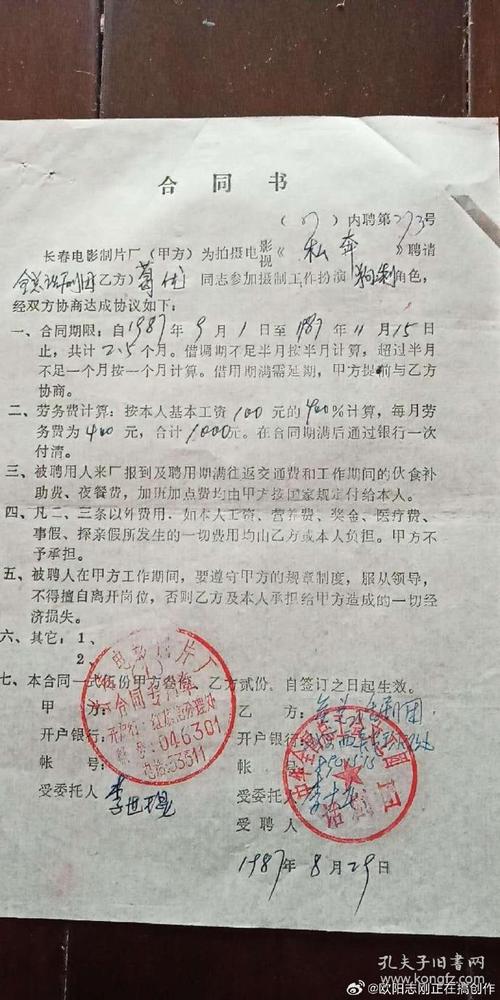 合同书
(87)内聘第273号
长春电影制片厂(甲方)为拍摄电影视《私奔》聘请
全总话剧团(乙方)葛优同志参加摄制工作扮演角色,
经双方协商达成协议如下:
一、合同期限:自1987年9月1日至1987年11月15日
止,共计2.5个月。借调期不足半月按半月计算,超过半月
不足一个月按一个月计算。借用期满需延期,甲方提前与乙方
协商。
二、劳务费计算:按本人基本工资100元的400%计算,每月劳
务费为400元,合计1000元。在合同期满后通过银行一次
付清。
三、被聘用人来厂报到及聘用期满往返交通费和工作期间的伙食补
助费、夜餐费,加班加点费均由甲方按国家规定付给本人。
四、凡二、三条以外费用,如本人工资、营养费、奖金、医疗费、
事假、探亲假所发生的一切费用均由乙方或本人负担。甲方不
予承担。
五、被聘人在甲方工作期间,要遵守甲方的规章制度,服从领导,
不得擅自离开岗位,否则乙方及本人承担给甲方造成的一切经
济损失。
六、其它:1、
2、
七、本合同一式伍份甲方叁份,乙方贰份,自签订之日起生效。
甲方:
乙方:全总话剧团
开户银行:
开户银行:
帐号:
帐号:
受委托人
受委托人
受聘人
1987年8月29日
电影制片厂
合同专用章
开户行:红旗街办理处
帐号:046301
电话:53311
中华全国总工会
话剧团
孔夫子旧书网
www.kongfz.com
@欧阳志刚正在搞创作